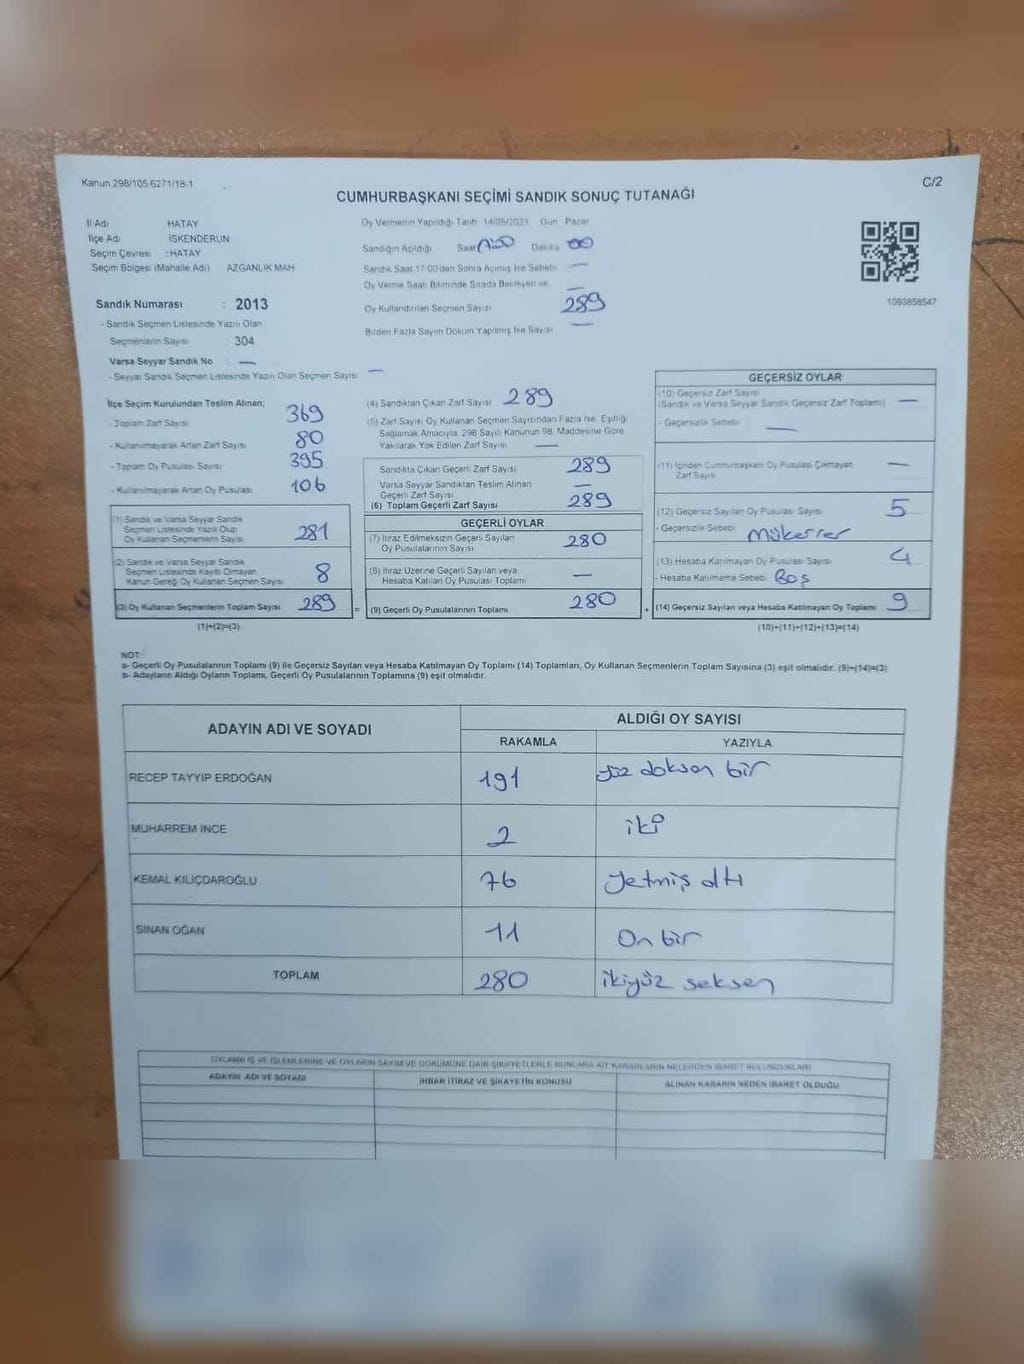 Kanun 298/105 6271/18-1
C/2
CUMHURBAŞKANI SEÇİMİ SANDIK SONUÇ TUTANAĞI
İl Adı HATAY
İlçe Adı İSKENDERUN
Seçim Çevresi : HATAY
Seçim Bölgesi (Mahalle Adı) AZGANLIK MAH
Oy Vermenin Yapıldığı Tarih 14/05/2023 Gün Pazar
Sandığın Açıldığı Saat Dakika 00
Sandık Saat 17:00'den Sonra Açılmış İse Sebebi —
Oy Verme Saati Bitiminde Sırada Bekleyen ve
Oy Kullandırılan Seçmen Sayısı —
289
Birden Fazla Sayım Döküm Yapılmış İse Sayısı —
1093858547
Sandık Numarası : 2013
- Sandık Seçmen Listesinde Yazılı Olan
Seçmenlerin Sayısı : 304
Varsa Seyyar Sandık No : —
- Seyyar Sandık Seçmen Listesinde Yazılı Olan Seçmen Sayısı —
İlçe Seçim Kurulundan Teslim Alınan;
- Toplam Zarf Sayısı 369
- Kullanılmayarak Artan Zarf Sayısı 80
- Toplam Oy Pusulası Sayısı 395
- Kullanılmayarak Artan Oy Pusulası 106
(1) Sandık ve Varsa Seyyar Sandık
Seçmen Listesinde Yazılı Olup
Oy Kullanan Seçmenlerin Sayısı 281
(2) Sandık ve Varsa Seyyar Sandık
Seçmen Listesinde Kayıtlı Olmayan
Kanun Gereği Oy Kullanan Seçmen Sayısı 8
(3) Oy Kullanan Seçmenlerin Toplam Sayısı 289
(1)+(2)=(3)
(4) Sandıktan Çıkan Zarf Sayısı 289
(5) Zarf Sayısı Oy Kullanan Seçmen Sayısından Fazla İse, Eşitliği
Sağlamak Amacıyla, 298 Sayılı Kanunun 98. Maddesine Göre
Yakılarak Yok Edilen Zarf Sayısı —
Sandıkta Çıkan Geçerli Zarf Sayısı 289
Varsa Seyyar Sandıktan Teslim Alınan
Geçerli Zarf Sayısı —
(6) Toplam Geçerli Zarf Sayısı 289
GEÇERLİ OYLAR
(7) İtiraz Edilmeksizin Geçerli Sayılan
Oy Pusulalarının Sayısı 280
(8) İtiraz Üzerine Geçerli Sayılan veya
Hesaba Katılan Oy Pusulası Toplamı —
= (9) Geçerli Oy Pusulalarının Toplamı 280
GEÇERSİZ OYLAR
(10) Geçersiz Zarf Sayısı
(Sandık ve Varsa Seyyar Sandık Geçersiz Zarf Toplamı) —
- Geçersizlik Sebebi —
(11) İçinden Cumhurbaşkanı Oy Pusulası Çıkmayan
Zarf Sayısı —
(12) Geçersiz Sayılan Oy Pusulası Sayısı 5
- Geçersizlik Sebebi Mükerrer
(13) Hesaba Katılmayan Oy Pusulası Sayısı 4
- Hesaba Katılmama Sebebi Boş
+ (14) Geçersiz Sayılan veya Hesaba Katılmayan Oy Toplamı 9
(10)+(11)+(12)+(13)=(14)
NOT:
a- Geçerli Oy Pusulalarının Toplamı (9) ile Geçersiz Sayılan veya Hesaba Katılmayan Oy Toplamı (14) Toplamları, Oy Kullanan Seçmenlerin Toplam Sayısına (3) eşit olmalıdır. (9)+(14)=(3)
b- Adayların Aldığı Oyların Toplamı, Geçerli Oy Pusulalarının Toplamına (9) eşit olmalıdır.
ADAYIN ADI VE SOYADI
ALDIĞI OY SAYISI
RAKAMLA YAZIYLA
RECEP TAYYİP ERDOĞAN 191 yüz doksan bir
MUHARREM İNCE 2 iki
KEMAL KILIÇDAROĞLU 76 yetmiş altı
SİNAN OĞAN 11 On bir
TOPLAM 280 ikiyüz seksen
OYLAMA İŞ VE İŞLEMLERİNE VE OYLARIN SAYIM VE DÖKÜMÜNE DAİR ŞİKAYETLERLE BUNLARA AİT KARARLARIN NELERDEN İBARET BULUNDUKLARI
ADAYIN ADI VE SOYADI İHBAR İTİRAZ VE ŞİKAYETİN KONUSU ALINAN KARARIN NEDEN İBARET OLDUĞU